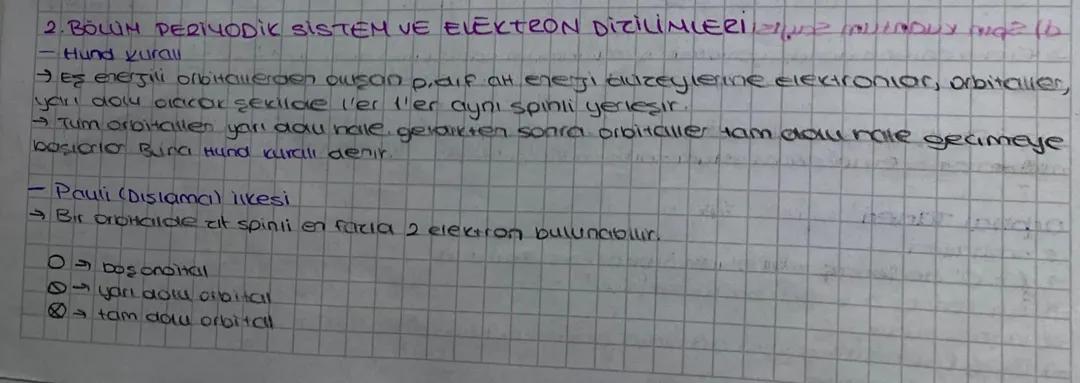 2. BÖLÜM PERİYODİK SİSTEM VE ELEKTRON DİZİLİMLERİ
- Hund kuralı
→ Eş enerjili orbitallerden oluşan p,d,f alt enerji düzeylerine elektronlar, orbitaller,
yarı dolu olacak şekilde 1'er 1'er aynı spinli yerleşir.
→ Tüm orbitaller yarı dolu hale geldikten sonra orbitaller tam dolu hale geçmeye
başlarlar Buna Hund kuralı denir.
- Pauli (Dışlama) ilkesi
→ Bir orbitalde zıt spinli en fazla 2 elektron bulunabilir.
○ → boş orbital
⊘ → yarı dolu orbital
⊗ → tam dolu orbital